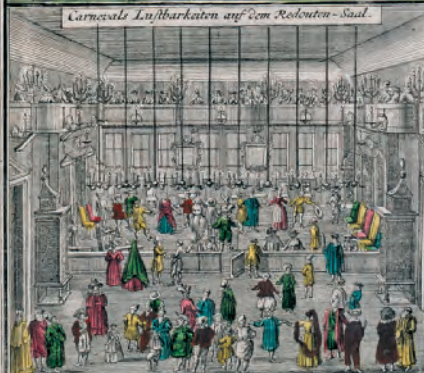 Carnevals Lustbarkeiten auf dem Redouten-Saal.